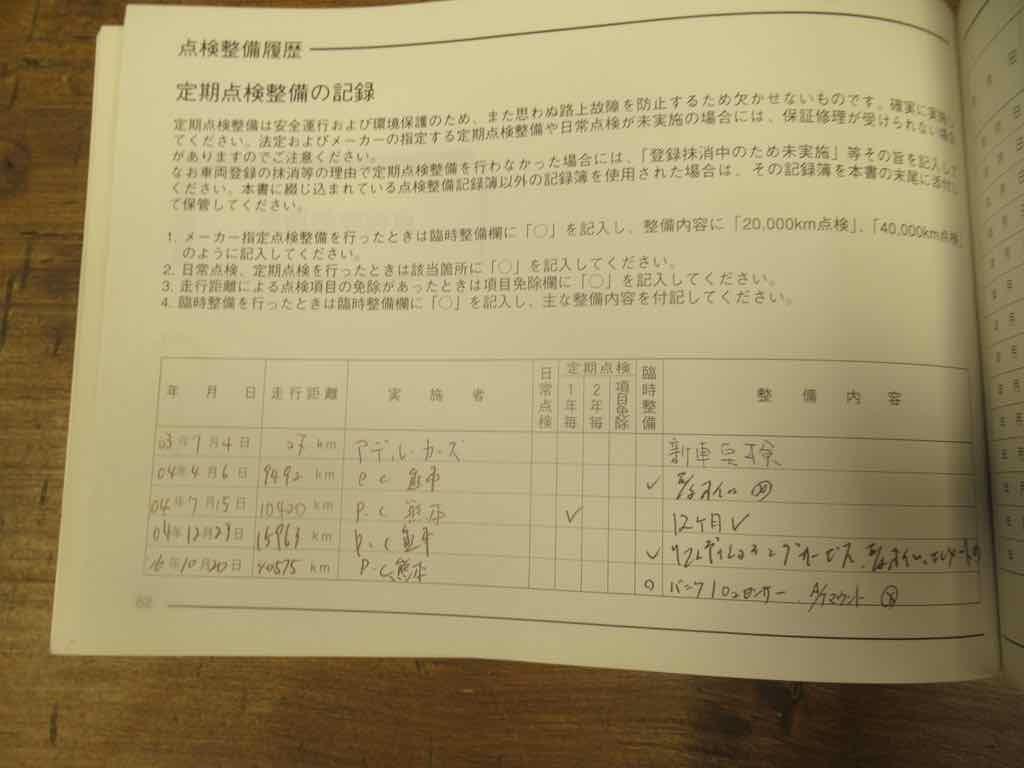 点検整備履歴
定期点検整備の記録
定期点検整備は安全運行および環境保護のため、また思わぬ路上故障を防止するため欠かせないものです。確実に実施し
てください。法定およびメーカーの指定する定期点検整備や日常点検が未実施の場合には、保証修理が受けられない場合
がありますのでご注意ください。
なお車両登録の抹消等の理由で定期点検整備を行わなかった場合には、「登録抹消中のため未実施」等その旨を記入して
ください。本書に綴じ込まれている点検整備記録簿以外の記録簿を使用された場合は、その記録簿を本書の末尾に添付し
て保管してください。
1. メーカー指定点検整備を行ったときは臨時整備欄に「○」を記入し、整備内容に「20,000km点検」、「40,000km点検」
のように記入してください。
2. 日常点検、定期点検を行ったときは該当箇所に「○」を記入してください。
3. 走行距離による点検項目の免除があったときは項目免除欄に「○」を記入してください。
4. 臨時整備を行ったときは臨時整備欄に「○」を記入し、主な整備内容を付記してください。
年 月 日 走行距離 実施者 日常点検 定期点検 1年毎 2年毎 項目免除 臨時整備 整備内容
03年7月4日 27 km アデル・カーズ 新車点検
04年4月6日 9492 km P.C 熊本 ✓
04年7月15日 10420 km P.C 熊本 ✓ 12ヶ月 ✓
04年12月29日 15969 km P.C 熊本 ✓
16年10月20日 km P.C 熊本 ○
62